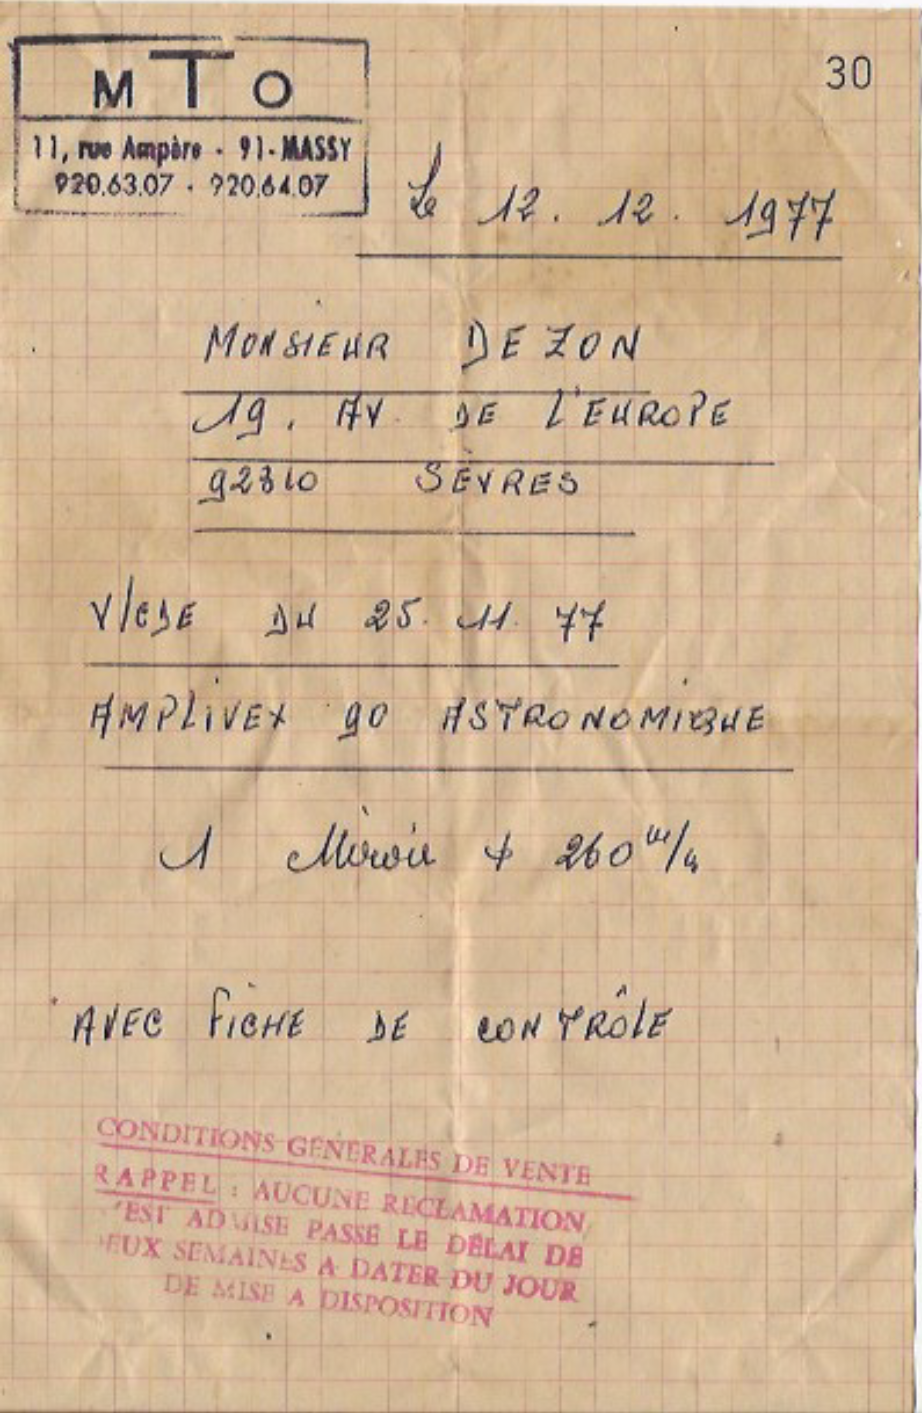 MTO
30
11, rue Ampère - 91-MASSY
920.63.07 - 920.64.07
Le 12. 12. 1977
MONSIEUR DEZON
19. AV. DE L'EUROPE
92310 SÈVRES
V/CDE DU 25. 11. 77
AMPLIVEX 90 ASTRONOMIQUE
1 Miroir ϕ 260 m/m
AVEC FICHE DE CONTRÔLE
CONDITIONS GÉNÉRALES DE VENTE
RAPPEL : AUCUNE RECLAMATION
'EST ADMISE PASSÉ LE DÉLAI DE
EUX SEMAINES A DATER DU JOUR
DE MISE A DISPOSITION